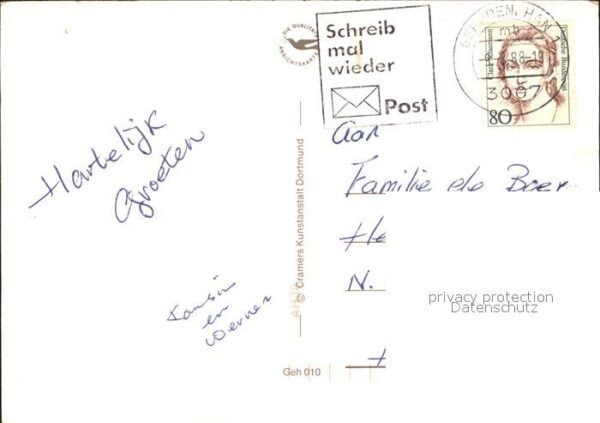 DIE QUALITÄTS
ANSICHTSKARTE
Schreib
mal
wieder
Post
GEHRDEN, HAN 1
mb
-9.88-19
3007
Deutsche Bundespost
80
Hartelijk
Groeten
en
Werner
© Cramers Kunstanstalt Dortmund
Aan
Familie de Boer
N.
privacy protection
Datenschutz
Geh 010